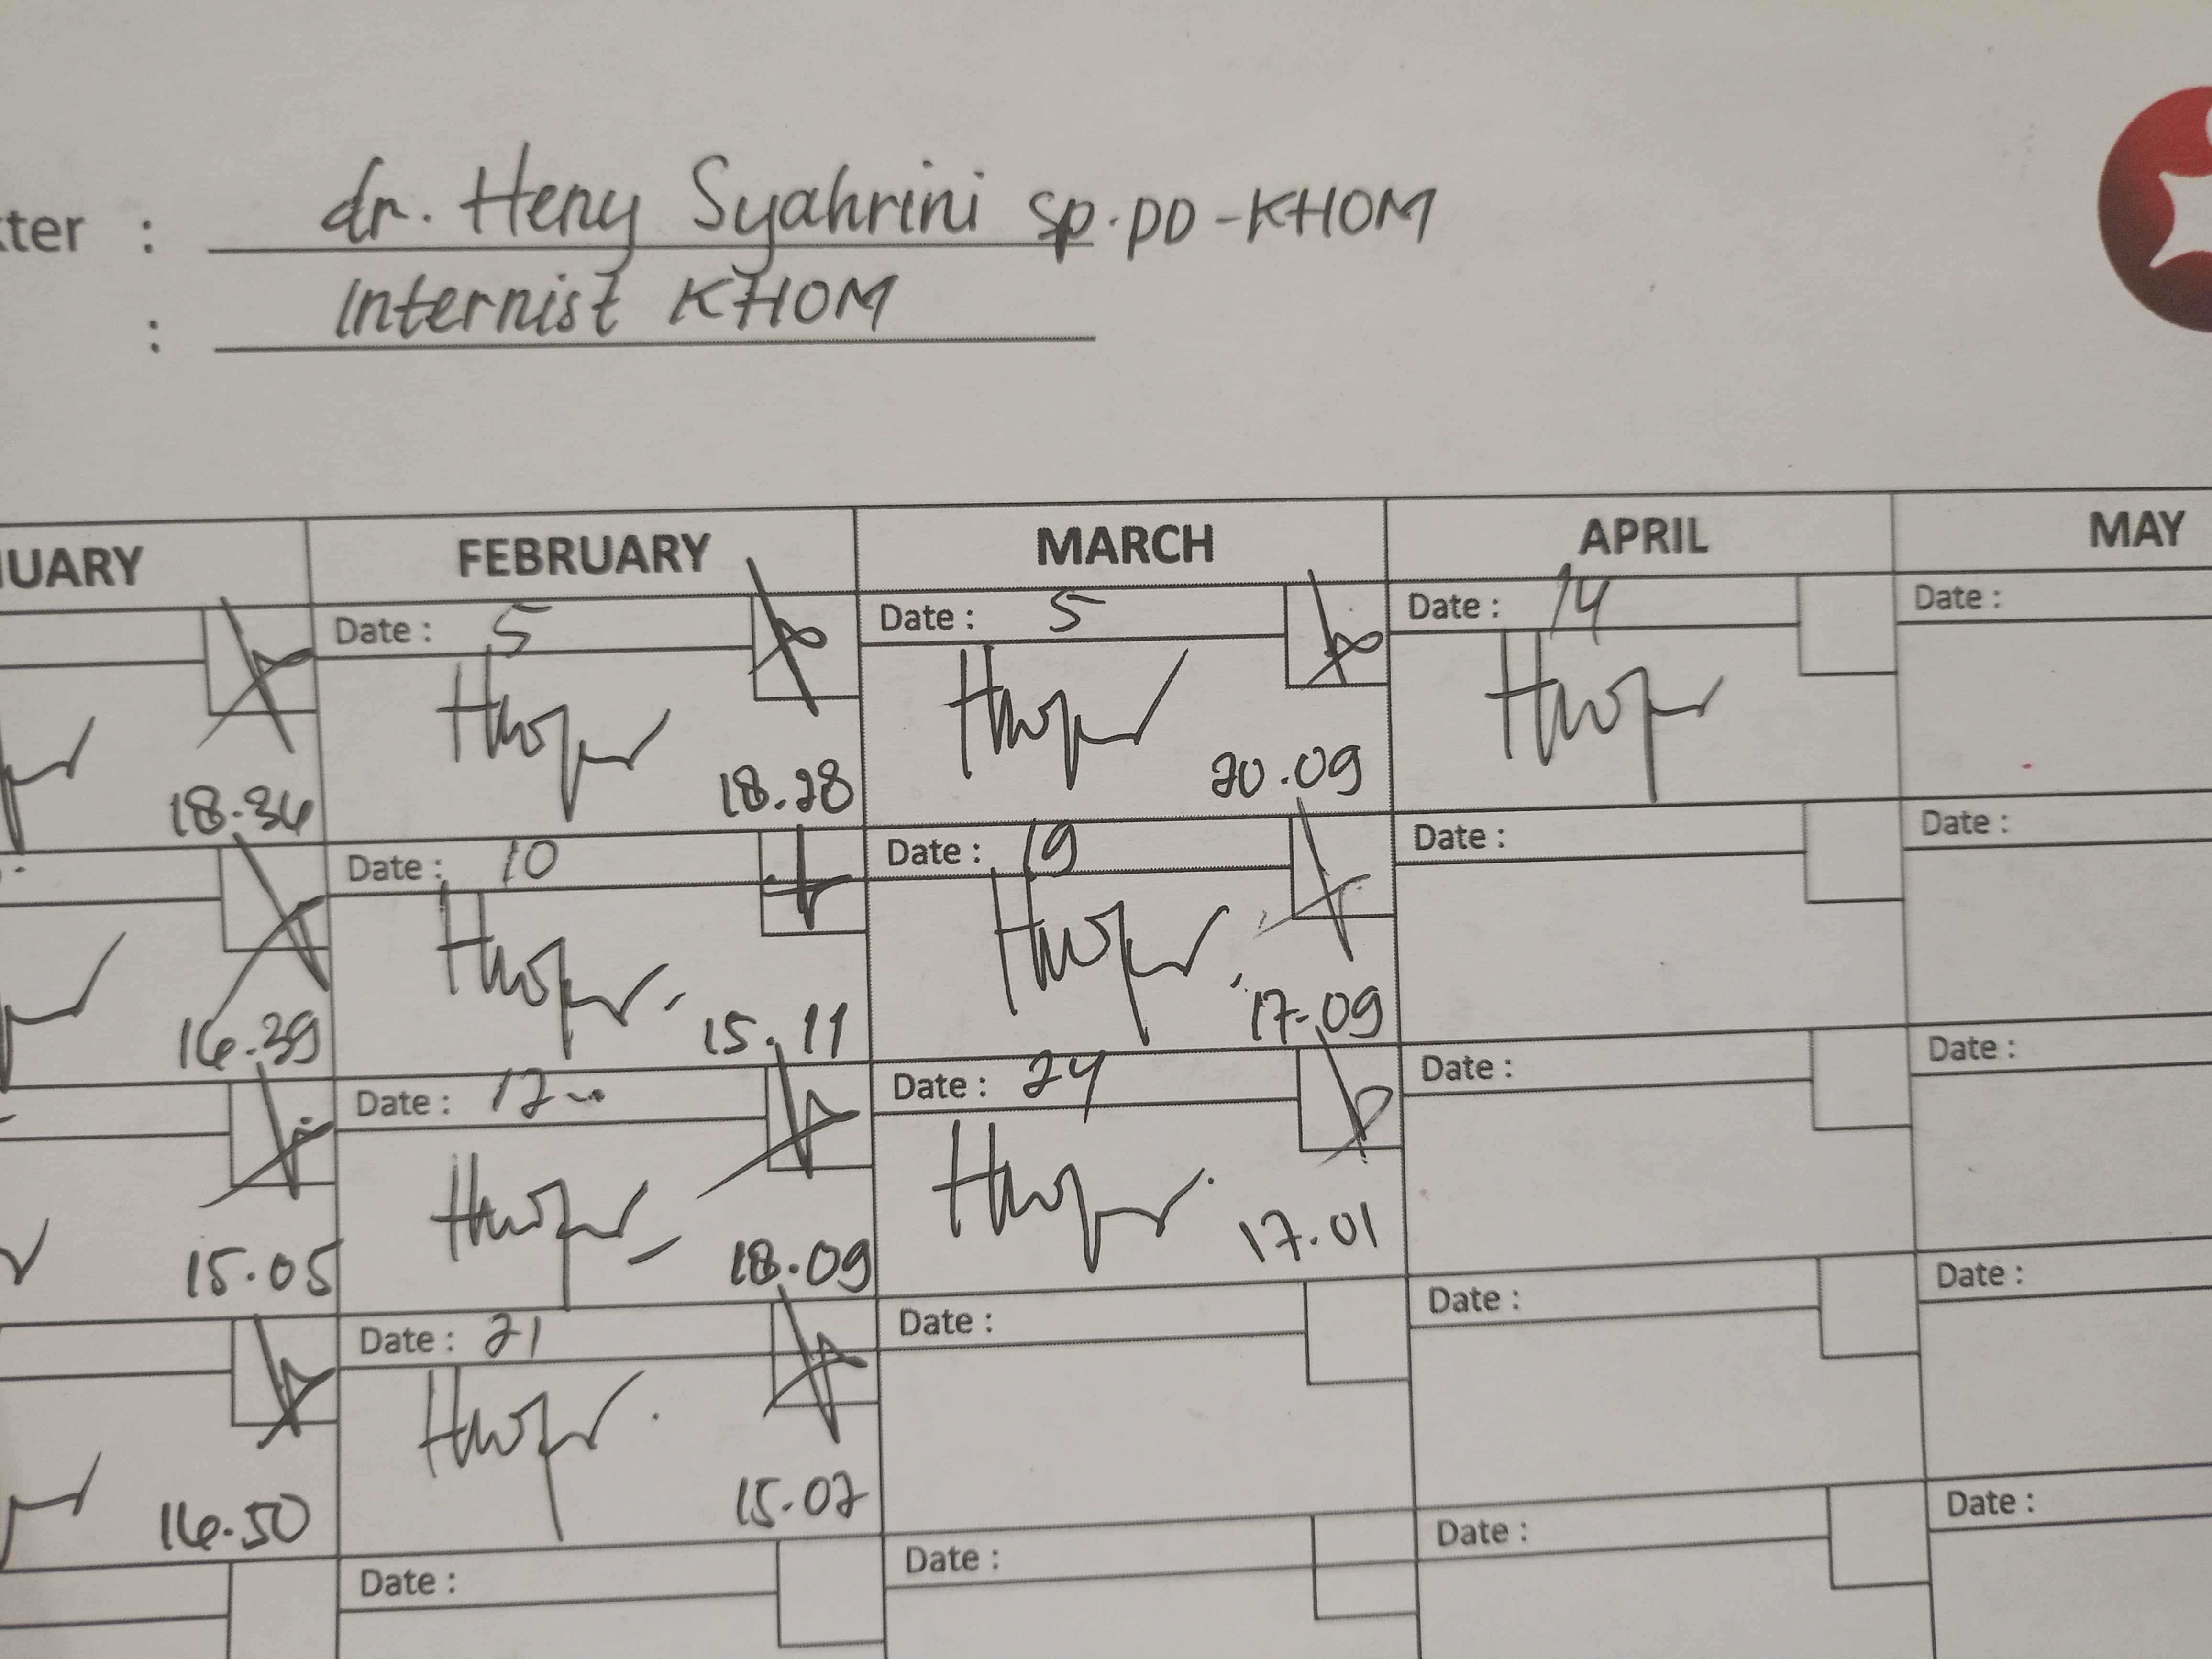 ter : dr. Heny Syahrini Sp.PD-KHOM
: Internist KHOM
UARY FEBRUARY MARCH APRIL MAY
Date : 5 Date : 5 Date : 14 Date :
18.34 18.28 20.09
Date : 10 Date : 19 Date : Date :
16.39 15.11 17.09
Date : 12 Date : 24 Date : Date :
15.05 18.09 17.01
Date : 21 Date : Date : Date :
16.50 15.07
Date : Date : Date : Date :